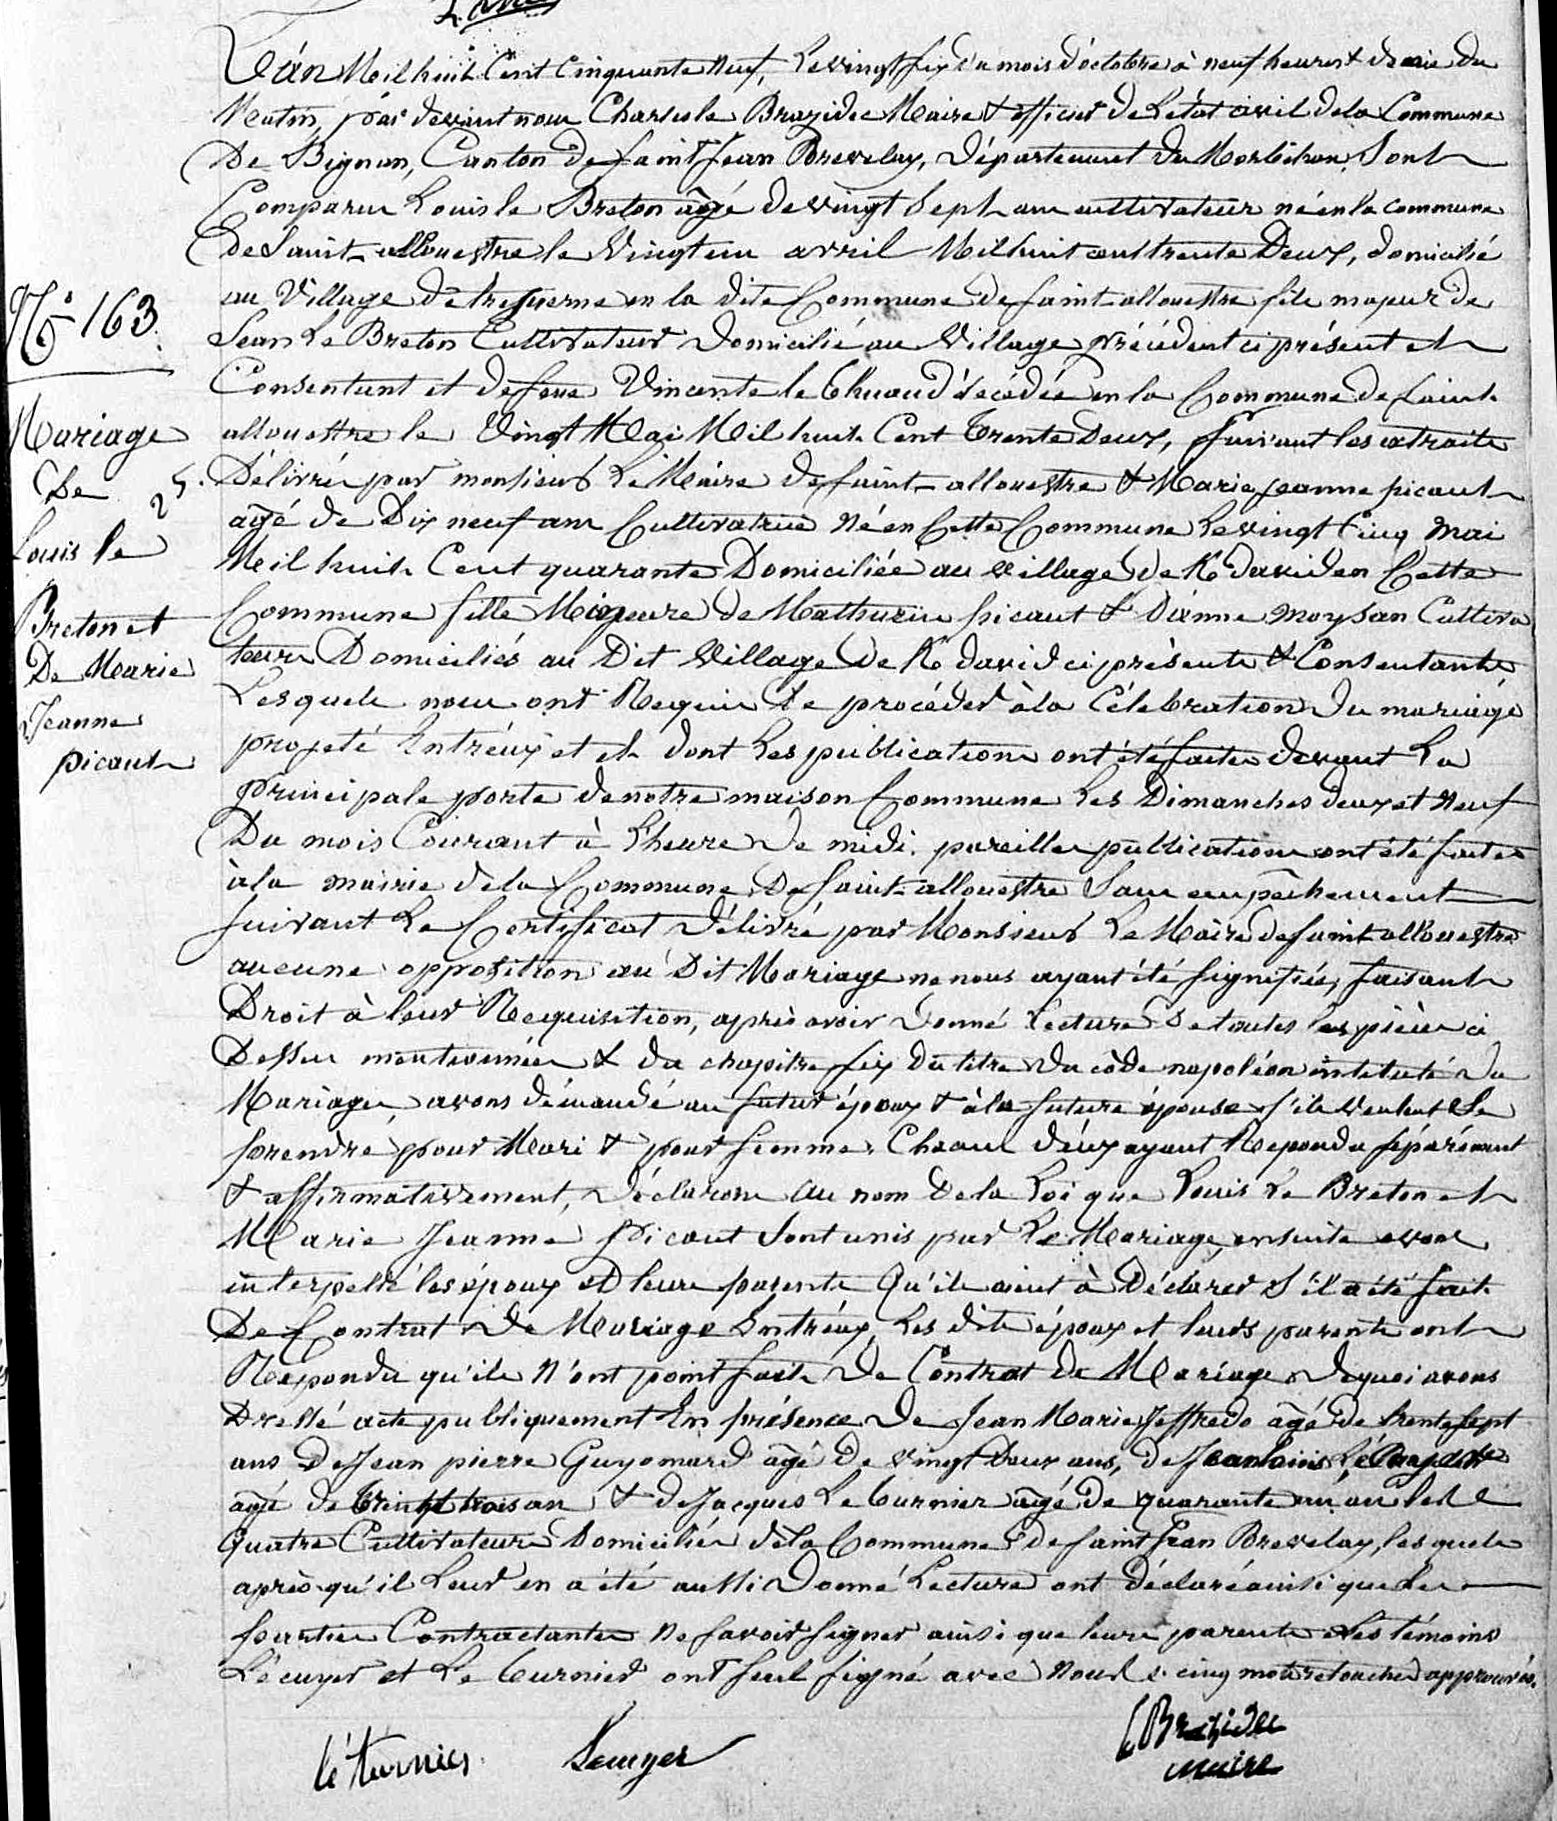 N° 163
Mariage
De
Louis le
Breton et
De Marie
Jeanne
picaut
25.
L'an Mil huit Cent Cinquante Neuf, Le vingt six du mois d'octobre à neuf heures & demie du
Matin, par devant nous Charles le Brazidec Maire & officier de L'état civil de la Commune
De Bignan, Canton de saint Jean Brevelay, Département du Morbihan, Sont
Comparu Louis le Breton âgé de vingt Sept ans cultivateur né en la commune
de Saint-allouestre le Vingt un avril Mil huit cent trente Deux, domicilié
au Village de en la dite Commune de saint-allouestre fils majeur de
Jean Le Breton Cultivateur Domicilié au Village précédent ci présent et
Consentant et de feue Vincente le Thuaud décédée en la Commune de saint-
allouestre le Vingt Mai Mil huit Cent Trente Deux, suivant les extraits
Délivrés par monsieur Le Maire de saint-allouestre & Marie jeanne picaut
agé de Dix neuf ans Cultivatrice Né en Cette Commune Le vingt Cinq mai
Mil huit Cent quarante Domiciliée au village de K david en Cette
Commune fille Mineure de Mathurin picaut & Dianne moysan Cultiva
teurs Domiciliés au Dit Village de K david ci présents & Consentants
Lesquels nous ont Requis de procéder à la Célébration du mariage
projeté Entréux et et dont Les publications ont été faites devant La
principale porte de notre maison Commune Les Dimanches deux et Neuf
Du mois Courant à L'heure de midi. pareilles publications ont été faites
à la mairie de la Commune De saint-allouestre Sans empêchement
suivant Le Certificat Délivré par Monsieur Le Maire de saint allouestre
aucune opposition au Dit Mariage ne nous ayant été signifiée, faisant
Droit à leur Réquisition, après avoir Donné Lecture De toutes les pièces ci
Dessus mentionnées & du chapitre six du titre du còde napoléon intitulé du
Mariage, avons démandé au futur époux & à la future épouse s'ils veulent Se
prendre pour Mari & pour femme, Chacun d'eux ayant Repondu séparément
& affirmativement, Déclarons Au nom De la Loi que Louis Le Breton et
Marie Jeanne Picaut Sont unis par Le Mariage, ensuite avons
interpellé les époux et leurs parents Qu'ils aient à Déclarer S'il a été fait
De Contrat De Mariage Entréux, Les dits époux et leurs parents ont
Repondu qu'ils N'ont point fait De Contrat De Mariage De quoi avons
Dressé acte publiquement En présence De Jean Marie Jeffredo âgé de trente sept
ans De Jean pierre Guyomard agé De vingt Deux ans, de Jean Louis
agé de trois ans & de Jacques Le turnier âgé de quarante un ans les
quatre Cultivateurs Domiciliés de la Commune de saint Jean Brevelay, lesquels
après qu'il Leur en a été aussi Donné Lecture ont déclaré ainsi que Les
parties Contractantes Ne savoir signer ainsi que leurs parents Les témoins
Lécuyer et Le turnier ont seul signé avec Nous cinq mots retouchés approuvés.
le turnier Lecuyer
Le Brazidec
maire